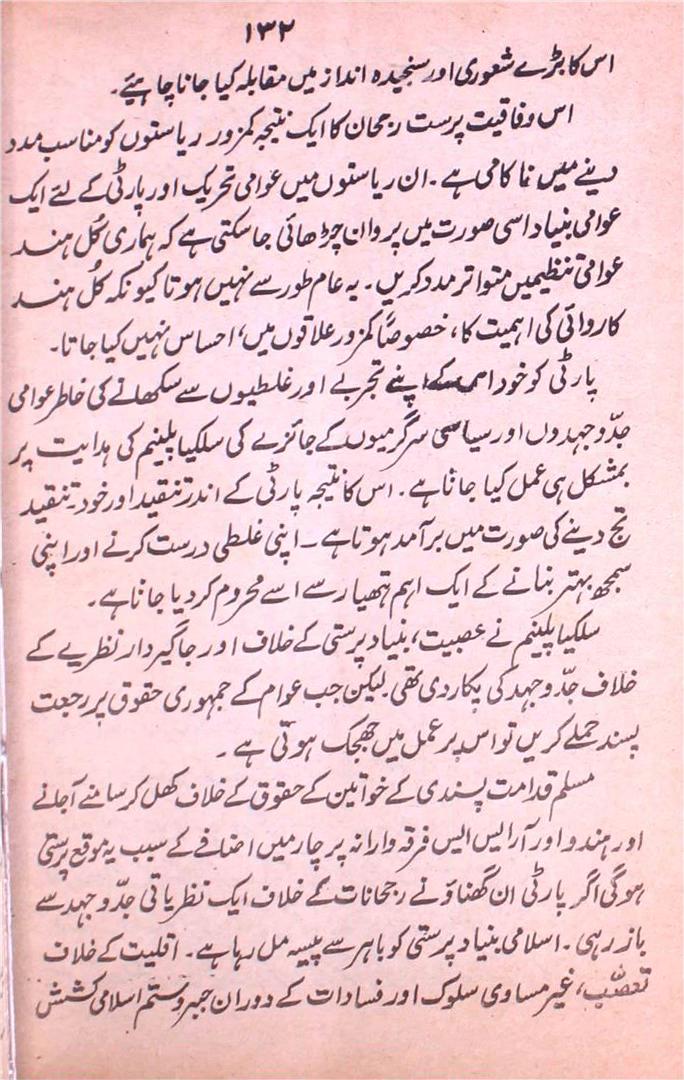 ۱۳۲
اس کا بڑے شعوری اور سنجیدہ انداز میں مقابلہ کیا جانا چاہیئے۔
اس وفاقیت پرست رجحان کا ایک نتیجہ کمزور ریاستوں کو مناسب مدد
دینے میں ناکامی ہے۔ ان ریاستوں میں عوامی تحریک اور پارٹی کے لئے ایک
عوامی بنیاد اسی صورت میں پروان چڑھائی جا سکتی ہے کہ ہماری کُل ہند
عوامی تنظیمیں متواتر مدد کریں۔ یہ عام طور سے نہیں ہوتا کیونکہ کُل ہند
کاروائی کی اہمیت کا، خصوصاً کمزور علاقوں میں، احساس نہیں کیا جاتا۔
پارٹی کو خود اپنے تجربے اور غلطیوں سے سکھانے کی خاطر عوامی
جدّوجہدوں اور سیاسی سرگرمیوں کے جائزے کی سلکیا پلینیم کی ہدایت پر
بمشکل ہی عمل کیا جاتا ہے۔ اس کا نتیجہ پارٹی کے اندر تنقید اور خود تنقید
تج دینے کی صورت میں برآمد ہوتا ہے۔ اپنی غلطی درست کرنے اور اپنی
سمجھ بہتر بنانے کے ایک اہم ہتھیار سے اسے محروم کر دیا جاتا ہے۔
سلکیا پلینیم نے عصبیت، بنیاد پرستی کے خلاف اور جاگیردار نظریے کے
خلاف جدّوجہد کی پکار دی تھی لیکن جب عوام کے جمہوری حقوق پر رجعت
پسند حملے کریں تو اس پر عمل میں جھجک ہوتی ہے۔
مسلم قدامت پسندی کے خواتین کے حقوق کے خلاف کھل کر سامنے آجانے
اور ہندو اور آر ایس ایس فرقہ وارانہ پرچار میں اضافے کے سبب یہ موقع پرستی
ہوگی اگر پارٹی ان گھناؤنے رجحانات کے خلاف ایک نظریاتی جدّوجہد سے
باز رہی۔ اسلامی بنیاد پرستی کو باہر سے پیسہ مل رہا ہے۔ اقلیت کے خلاف
تعصّب، غیر مساوی سلوک اور فسادات کے دوران جبروستم اسلامی کشش